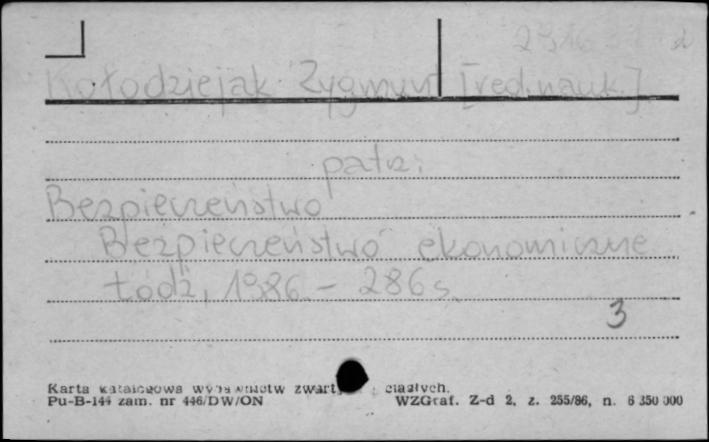 Kołodziejak Zygmunt [red. nauk.]
patrz:
Bezpieczeństwo
Bezpieczeństwo ekonomiczne
Łódź, 1986. - 286 s.
3
Karta katalogowa wydawnictw zwartych i ciągłych.
Pu-B-144 zam. nr 446/DW/ON
WZGraf. Z-d 2, z. 255/86, n. 6 350 000